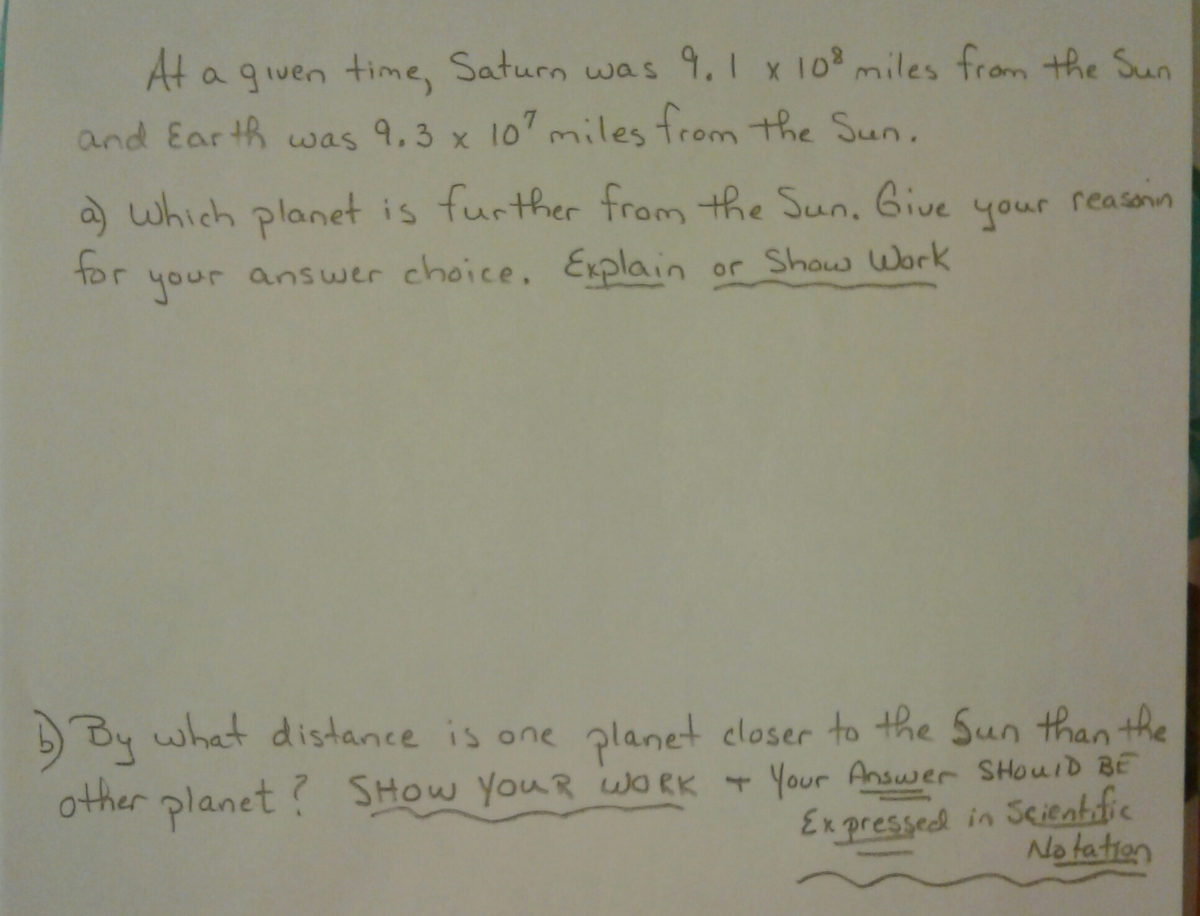 At a given time, Saturn was 9.1 x 10⁸ miles from the Sun
and Earth was 9.3 x 10⁷ miles from the Sun.
a) Which planet is further from the Sun. Give your reasonin
for your answer choice. Explain or Show Work
b) By what distance is one planet closer to the Sun than the
other planet? SHOW YOUR WORK + Your Answer SHOULD BE
Expressed in Scientific
Notation